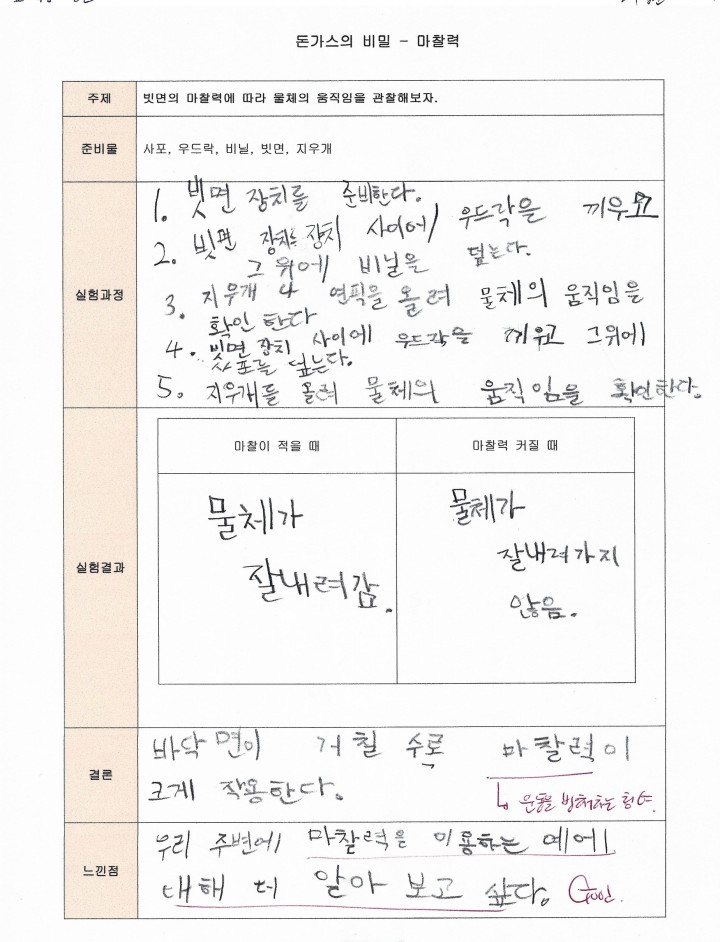 돈가스의 비밀 – 마찰력
주제
빗면의 마찰력에 따라 물체의 움직임을 관찰해보자.
준비물
사포, 우드락, 비닐, 빗면, 지우개
실험과정
1. 빗면 장치를 준비한다.
2. 빗면 장치 사이에 우드락을 끼우고
그 위에 비닐을 덮는다.
3. 지우개 나 연필을 올려 물체의 움직임을
확인 한다
4. 빗면 장치 사이에 우드락을 끼우고 그위에
사포를 덮는다.
5. 지우개를 올려 물체의 움직임을 확인한다.
실험결과
마찰이 적을 때
마찰력 커질 때
물체가
잘내려감.
물체가
잘내려가지
않음.
결론
바닥면이 거칠 수록 마찰력이
크게 작용한다.
↳ 운동을 방해하는 힘
느낀점
우리 주변에 마찰력을 이용하는 예에
대해 더 알아 보고 싶다. Good.